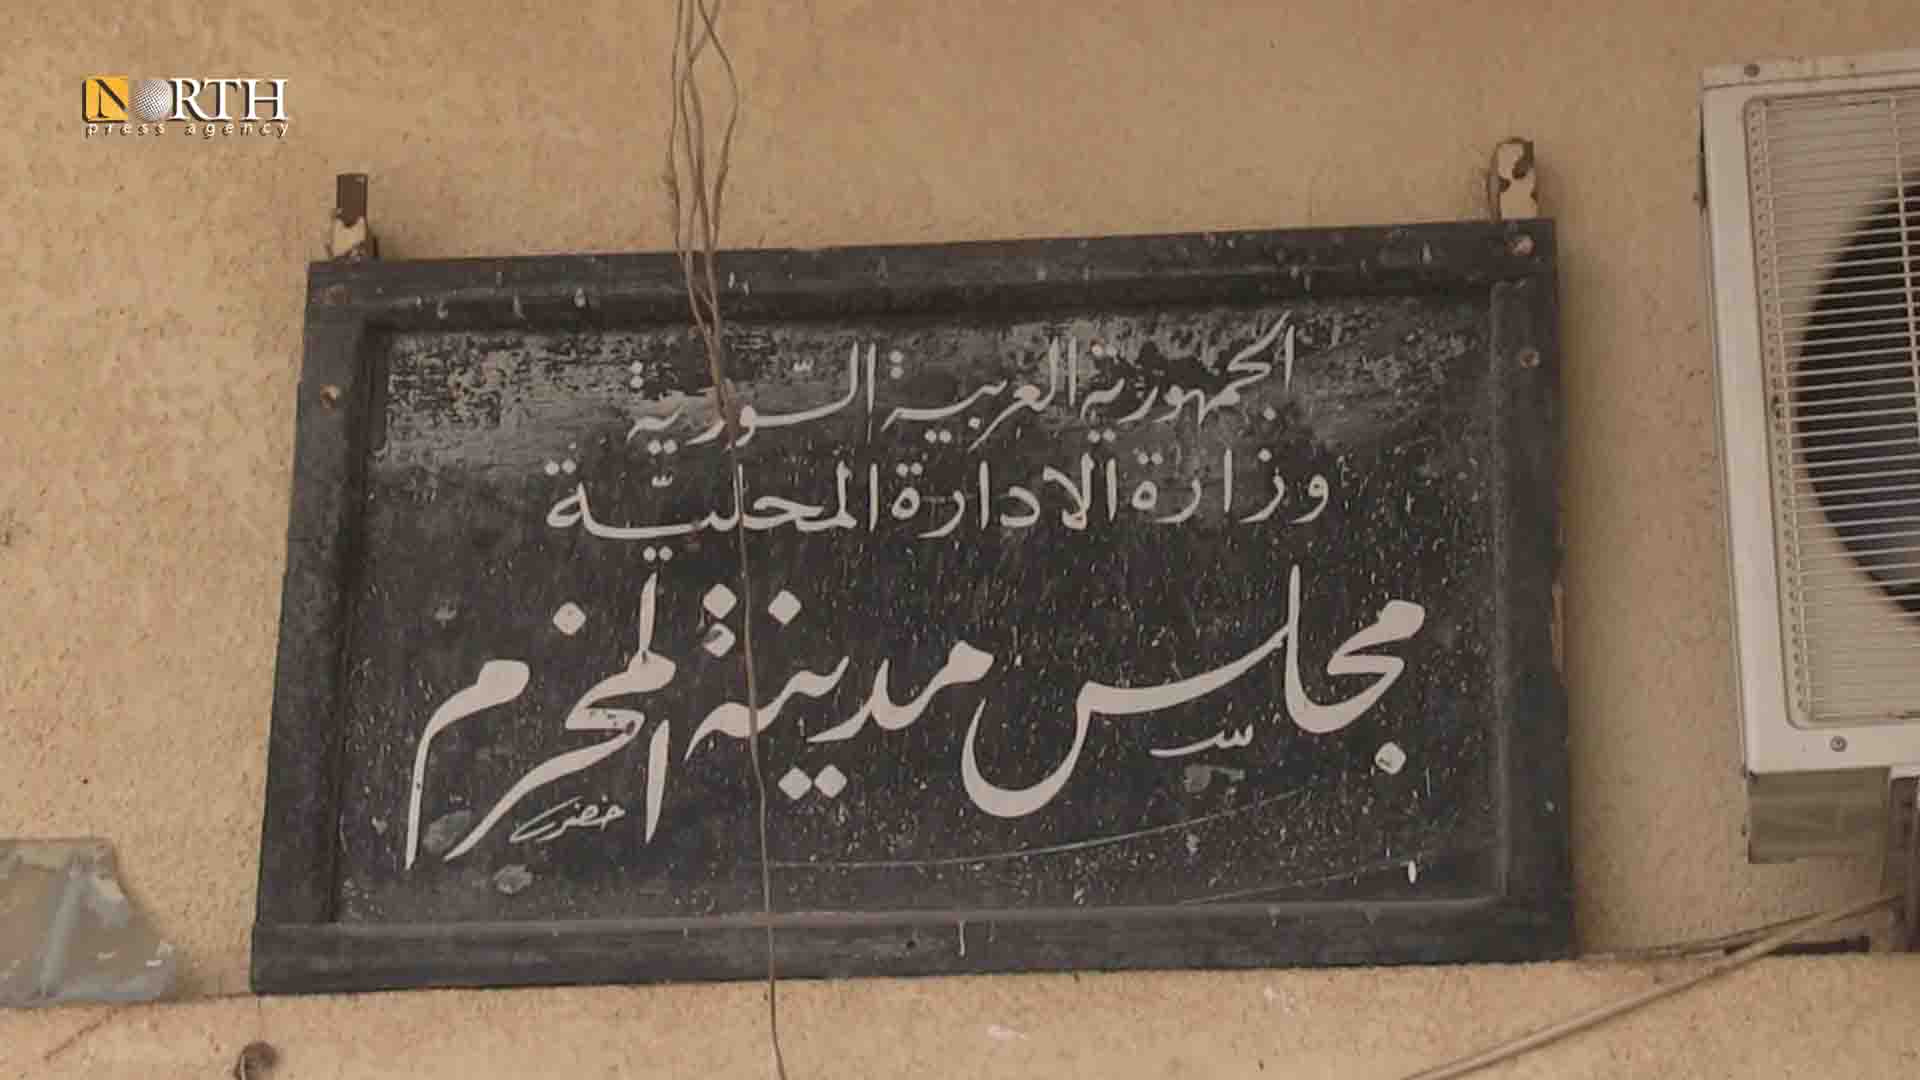 NORTH
press agency
الجمهورية العربية السّورية
وزارة الادارة المحليّة
مجلس مدينة المخرم